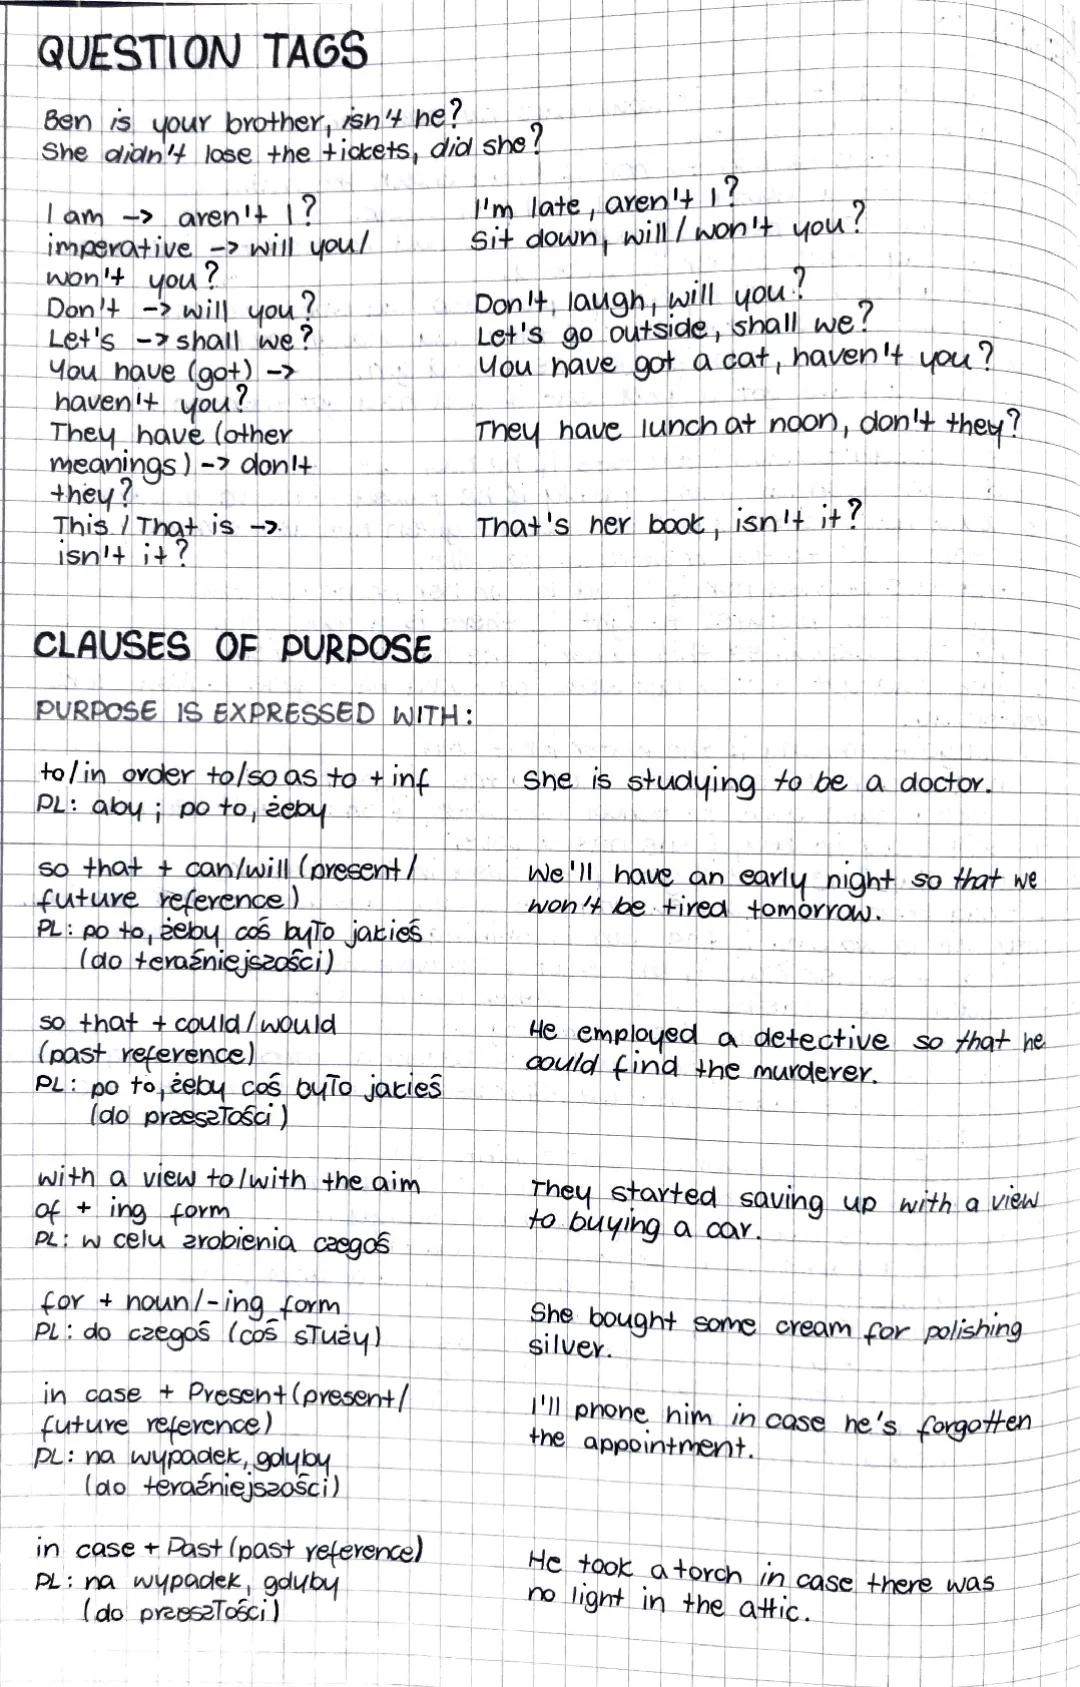 QUESTION TAGS
Ben is your brother, isn't he?
She didn't lose the tickets, did she?
I am -> aren't I?
I'm late, aren't I?
imperative -> will you/
won't you?
Sit down, will/won't you?
Don't -> will you?
Don't, laugh, will you?
Let's -> shall we?
Let's go outside, shall we?
You have (got) ->
haven't you?
You have got a cat, haven't you?
They have (other
meanings) -> don't
they?
They have lunch at noon, don't they?
This / That is ->
isn't it?
That's her book, isn't it?
CLAUSES OF PURPOSE
PURPOSE IS EXPRESSED WITH:
to/in order to/so as to + inf
PL: aby; po to, żeby
She is studying to be a doctor.
so that + can/will (present/
future reference)
PL: po to, żeby coś było jakieś
(do teraźniejszości)
We'll have an early night so that we
won't be tired tomorrow.
so that + could/would
(past reference)
PL: po to, żeby coś było jakieś
(do przeszłości)
He employed a detective so that he
could find the murderer.
with a view to/with the aim
of + ing form
PL: w celu zrobienia czegoś
They started saving up with a view
to buying a car.
for + noun/-ing form
PL: do czegoś (coś służy)
She bought some cream for polishing
silver.
in case + Present (present/
future reference)
PL: na wypadek, gdyby
(do teraźniejszości)
I'll phone him in case he's forgotten
the appointment.
in case + Past (past reference)
PL: na wypadek, gdyby
(do przeszłości)
He took a torch in case there was
no light in the attic.